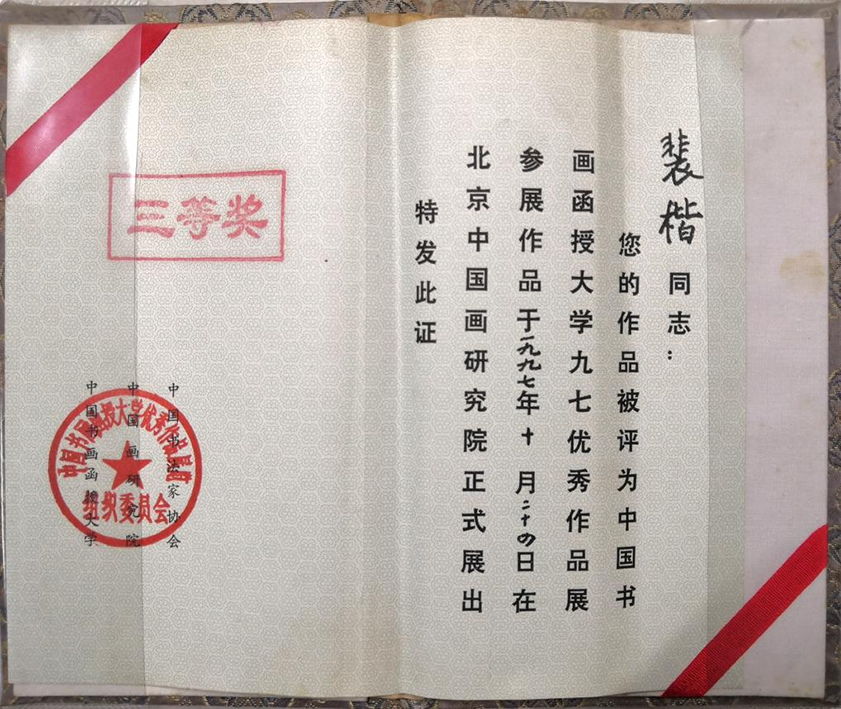 裴楷同志：
您的作品被评为中国书
画函授大学九七优秀作品展
参展作品于一九九七年十月二十四日在
北京中国画研究院正式展出
特发此证
三等奖
中国书法家协会
中国画研究院
中国书画函授大学
中国书画函授大学优秀作品展
组织委员会